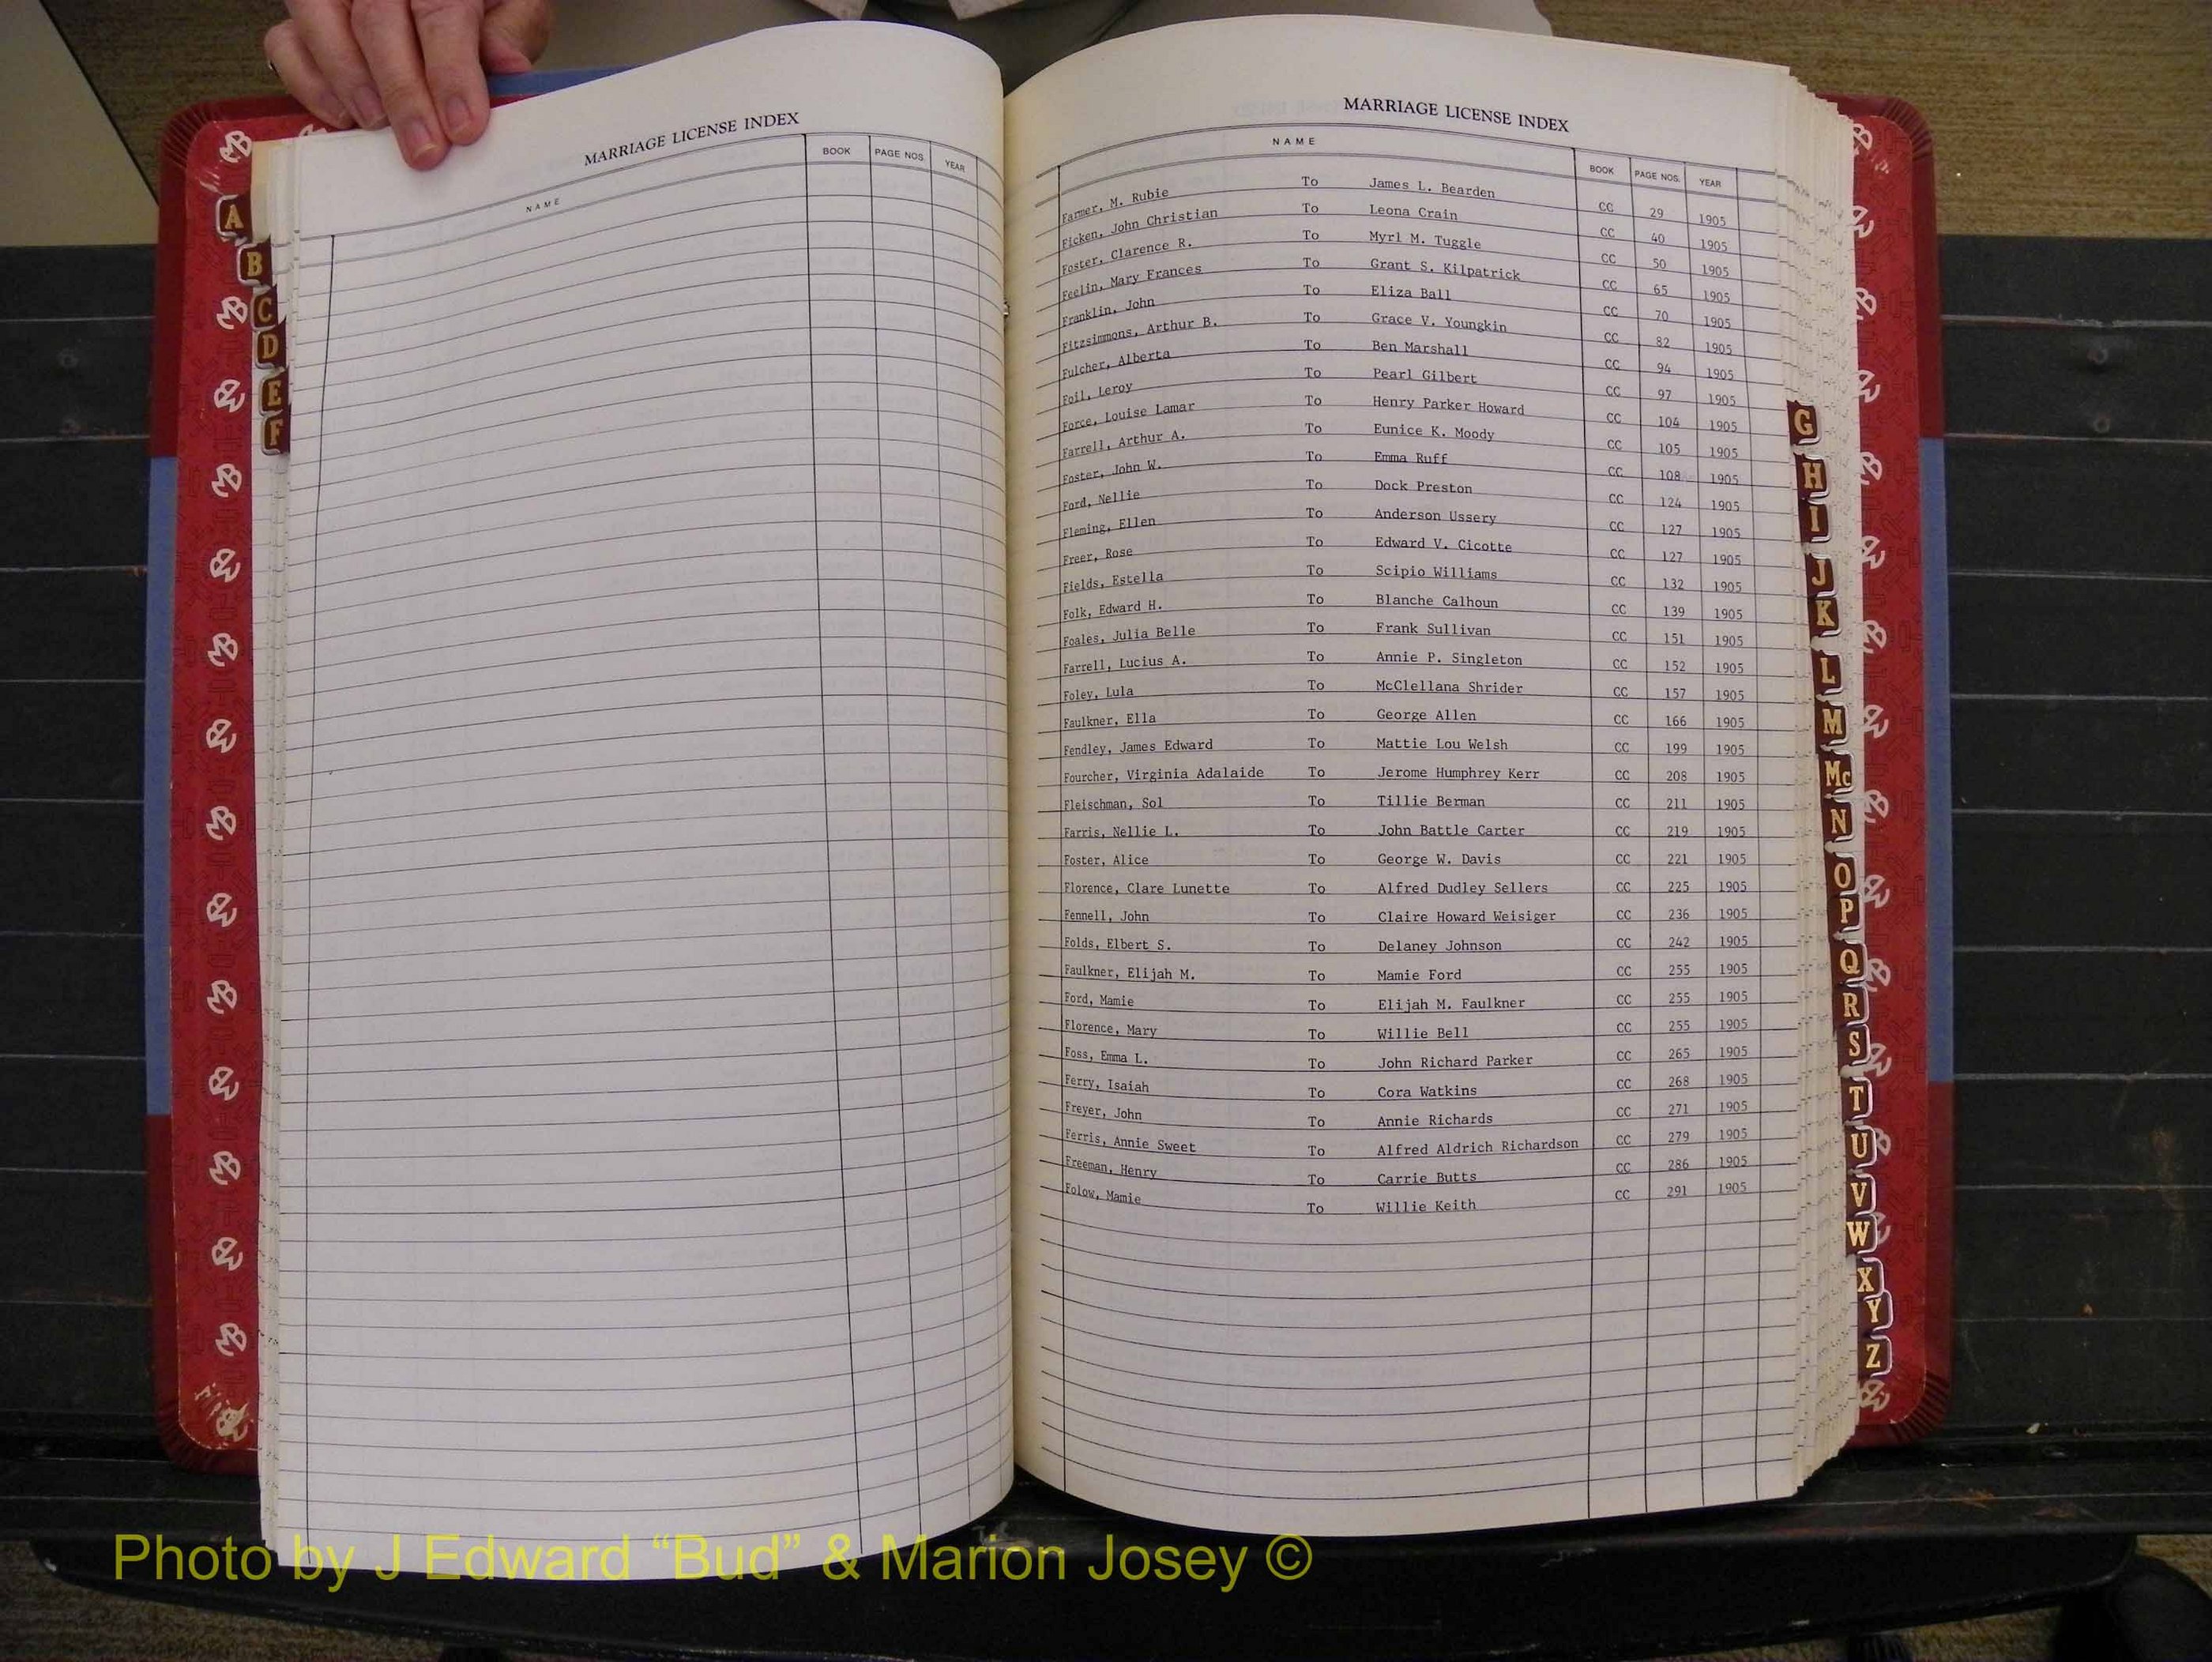 MARRIAGE LICENSE INDEX
NAME BOOK PAGE NOS. YEAR
A
B
C
D
E
F
MARRIAGE LICENSE INDEX
NAME BOOK PAGE NOS. YEAR
Farmer, M. Rubie To James L. Bearden CC 29 1905
Ficken, John Christian To Leona Crain CC 40 1905
Foster, Clarence R. To Myrl M. Tuggle CC 50 1905
Feelin, Mary Frances To Grant S. Kilpatrick CC 65 1905
Franklin, John To Eliza Ball CC 70 1905
Fitzsimmons, Arthur B. To Grace V. Youngkin CC 82 1905
Fulcher, Alberta To Ben Marshall CC 94 1905
Foil, Leroy To Pearl Gilbert CC 97 1905
Force, Louise Lamar To Henry Parker Howard CC 104 1905
Farrell, Arthur A. To Eunice K. Moody CC 105 1905
Foster, John W. To Emma Ruff CC 108 1905
Ford, Nellie To Dock Preston CC 124 1905
Fleming, Ellen To Anderson Ussery CC 127 1905
Freer, Rose To Edward V. Cicotte CC 127 1905
Fields, Estella To Scipio Williams CC 132 1905
Folk, Edward H. To Blanche Calhoun CC 139 1905
Foales, Julia Belle To Frank Sullivan CC 151 1905
Farrell, Lucius A. To Annie P. Singleton CC 152 1905
Foley, Lula To McClellana Shrider CC 157 1905
Faulkner, Ella To George Allen CC 166 1905
Fendley, James Edward To Mattie Lou Welsh CC 199 1905
Fourcher, Virginia Adalaide To Jerome Humphrey Kerr CC 208 1905
Fleischman, Sol To Tillie Berman CC 211 1905
Farris, Nellie L. To John Battle Carter CC 219 1905
Foster, Alice To George W. Davis CC 221 1905
Florence, Clare Lunette To Alfred Dudley Sellers CC 225 1905
Fennell, John To Claire Howard Weisiger CC 236 1905
Folds, Elbert S. To Delaney Johnson CC 242 1905
Faulkner, Elijah M. To Mamie Ford CC 255 1905
Ford, Mamie To Elijah M. Faulkner CC 255 1905
Florence, Mary To Willie Bell CC 255 1905
Foss, Emma L. To John Richard Parker CC 265 1905
Ferry, Isaiah To Cora Watkins CC 268 1905
Freyer, John To Annie Richards CC 271 1905
Ferris, Annie Sweet To Alfred Aldrich Richardson CC 279 1905
Freeman, Henry To Carrie Butts CC 286 1905
Folow, Mamie To Willie Keith CC 291 1905
G
H
I
J
K
L
M
Mc
N
O
P
Q
R
S
T
U
V
W
X
Y
Z
Photo by J Edward “Bud” & Marion Josey ©